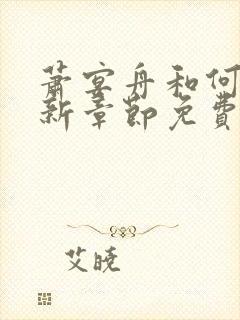 萧宴舟和何
新章节免费
艾晓